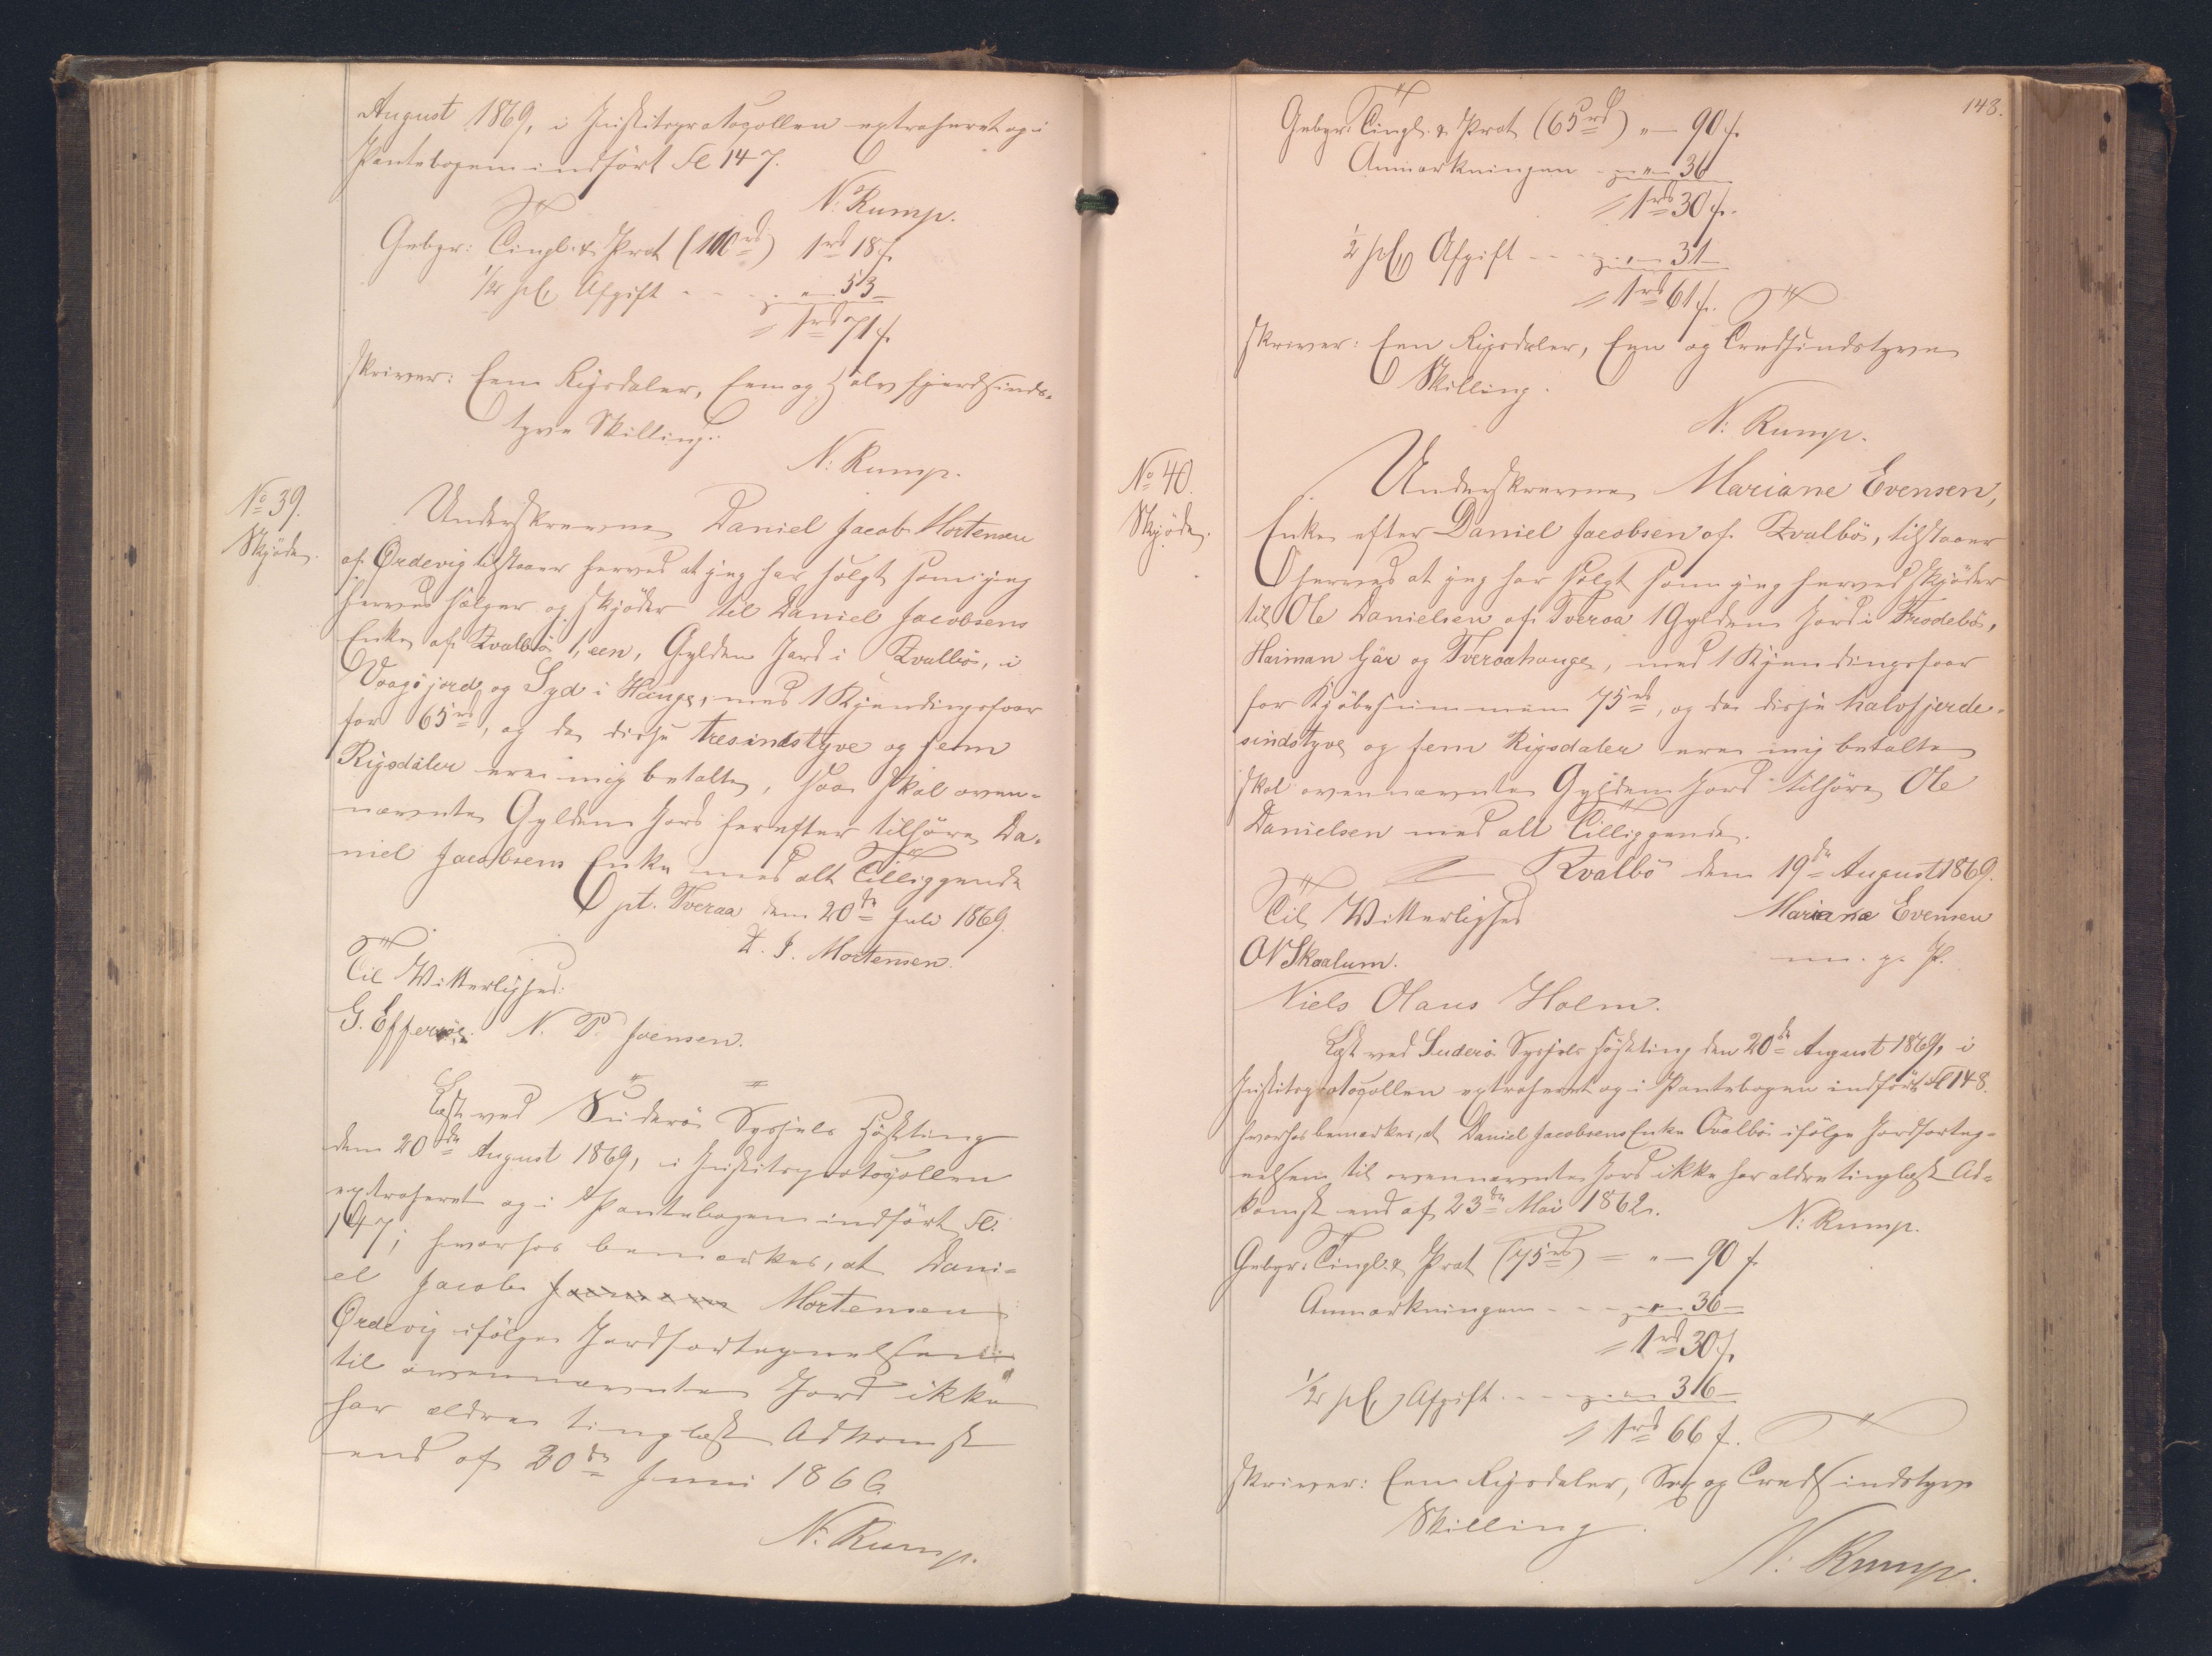 August 1869, i Justitsprotocollen extraheret og i
Pantebogen indført Fl 147.
N. Rump.
Gebyr: Tingl. & Prot (110rd) 1rd 18 s.
1/2 pCt Afgift - - - 53 -
= 1rd 71 s.
skriver: Een Rigsdaler, Een og Halvfjerdsinds-
tyve Skilling.
N. Rump.
No 39.
Skjøde.
Underskrevne Daniel Jacob Mortensen
af Ørdevig tilstaaer herved at jeg har solgt som jeg
herved sælger og skjøder til Daniel Jacobsens
Enke af Qvalbö 1, een, Gylden Jord i Qvalbö, i
Vaagöjord og Syd i Hauge, med 1 Kjendingsfaar
for 65rd, og da disse tresindstyve og fem
Rigsdaler ere mig betalte, saa skal oven-
nævnte Gylden Jord herefter tilhöre Da-
niel Jacobsens Enke med alt Tilliggende
pt. Tveraa den 20de Juli 1869.
D. J. Mortensen.
Til Witterlighed:
G. Effersöe. N. P. Joensen.
Læst ved Suderö Syssels Høstting
den 20de August 1869, i Justitsprotocollen
extraheret og i Pantebogen indført Fl.
147; hvorhos bemærkes, at Dani-
el Jacob Mortensen
Ørdevig ifölge Jordfortegnelsen
til ovennævnte Jord ikke
har ældre tinglæst Adkomst
end af 20de Juni 1866.
N. Rump.
143.
Gebyr: Tingl. & Prot (65rd) " - 90 s.
Anmærkningen - - " - 36
= 1rd 30 s.
1/2 pCt Afgift - - - " - 31 -
= 1rd 61 s.
skriver: Een Rigsdaler, Een og Tredsindstyve
Skilling.
N. Rump.
No 40.
Skjøde.
Underskrevne Mariane Evensen,
Enke efter Daniel Jacobsen af Qvalbö, tilstaaer
herved at jeg har solgt som jeg herved skjöder
til Ole Danielsen af Tveraa 1 Gylden Jord i Frodebö,
Haiman Gjær og Tveraahauge, med 1 Kjendingsfaar
for Kjöbesummen 75rd, og da disse halvfjerde-
sindstyve og fem Rigsdaler ere mig betalte
skal ovennævnte Gylden Jord tilhöre Ole
Danielsen med alt Tilliggende.
Kvalbö den 19de August 1869.
Til Witterlighed Mariane Evensen
O N Skaalum. m. f. P.
Niels Olaus Holm.
Læst ved Suderö Syssels Høstting den 20de August 1869, i
Justitsprotocollen extraheret og i Pantebogen indført Fl 148.
hvorhos bemærkes, at Daniel Jacobsens Enke Qvalbö ifölge Jordforteg-
nelsen til ovennævnte Jord ikke har ældre tinglæst Ad-
komst end af 23de Mai 1862.
N. Rump.
Gebyr: Tingl. & Prot (75rd) = " - 90 s.
Anmærkningen - - - " - 36 -
= 1rd 30 s.
1/2 pCt Afgift - - - " - 36 -
= 1rd 66 s.
skriver: Een Rigsdaler, Sex og Tredsindstyve
Skilling.
N. Rump.